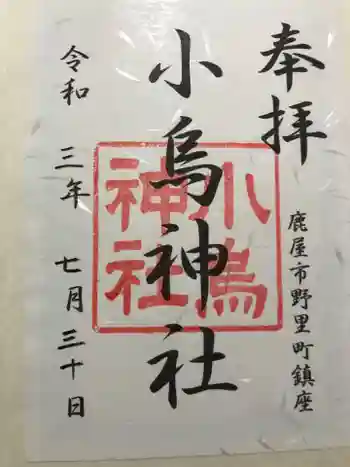 奉拝
鹿屋市野里町鎮座
小烏神社
小烏
神社
令和三年七月三十日